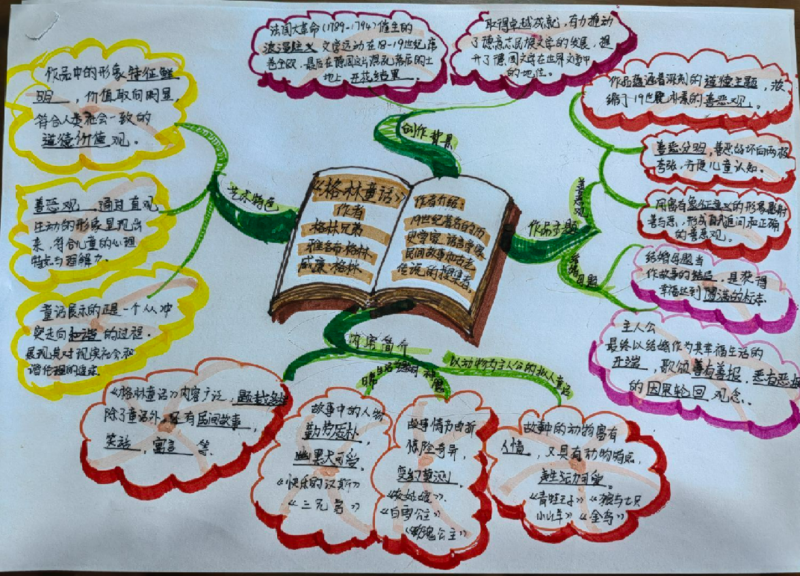 法国大革命(1789-1794)催生的
浪漫主义文学运动在18-19世纪席
卷全欧,最后在德国这片混乱落后的土
地上开花结果。
取得卓越成就,有力推动
了德意志民族文学的发展,提
升了德国文学在世界文学中
的地位。
创作背景
作品中的形象特征鲜
明,价值取向明显,
符合人类社会一致的
道德价值观。
善恶观,通过直观
生动的形象呈现出
来,符合儿童的心理
特点与理解力。
童话展示的正是一个从冲
突走向和谐的过程。
展现其对现实社会和
谐伦理的追求
艺术特色
《格林童话》
作者
格林兄弟
雅各布·格林
威廉·格林
作者介绍:
19世纪著名的历
史学家,语言学家,
民间故事和古老
传说的搜集者
作品主题
善恶观
作品蕴涵着深刻的道德主题,浓
缩了19世纪的善恶观。
善恶分明,善恶的好坏向两极
夸张,方便儿童认知。
用富有象征意义的形象累射
善与恶,形成真诚道问和正确
的善恶观。
结婚母题
结婚母题当
作故事的结尾,是获得
幸福达到圆满的标志。
主人公
最终以结婚作为其幸福生活的
开端,歌颂善有善报,恶有恶报
的因果轮回观念。
内容简介
以动物为主人公的拟人童话
《格林童话》内容广泛,题材多样
除了童话外,还有民间故事,
笑话,寓言等。
故事中的人物
勤劳质朴,
幽默又可爱。
《快乐的汉斯》
《三兄弟》
故事情节曲折
惊险奇异,
变幻莫测。
《灰姑娘》
《白雪公主》
《玫瑰公主》
故事中的动物富有
人情,又具有动物特点,
生动可爱。
《青蛙王子》《狼与七只
小山羊》《金鸟》